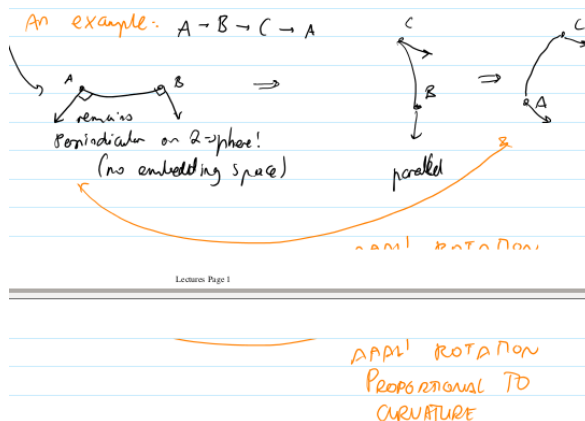 An example: A → B → C → A
C
C
A
B
⇒
⇒
B
A
remains
Perpindicular on 2-sphere!
(no embedding space)
parallel
Lectures Page 1
ROTATION
ROTATION
PROPORTIONAL TO
CURVATURE